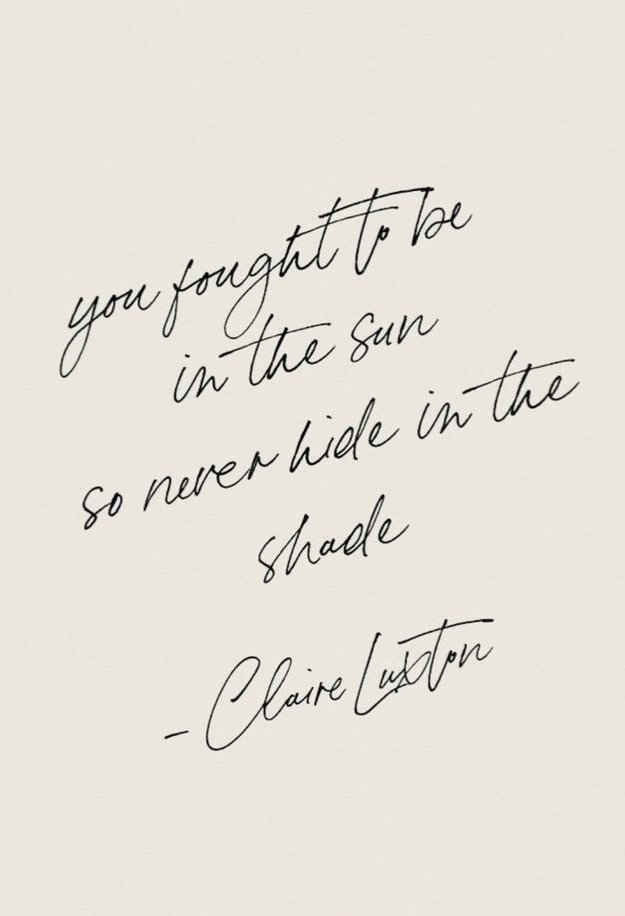 you fought to be
in the sun
so never hide in the
shade
- Claire Luxton